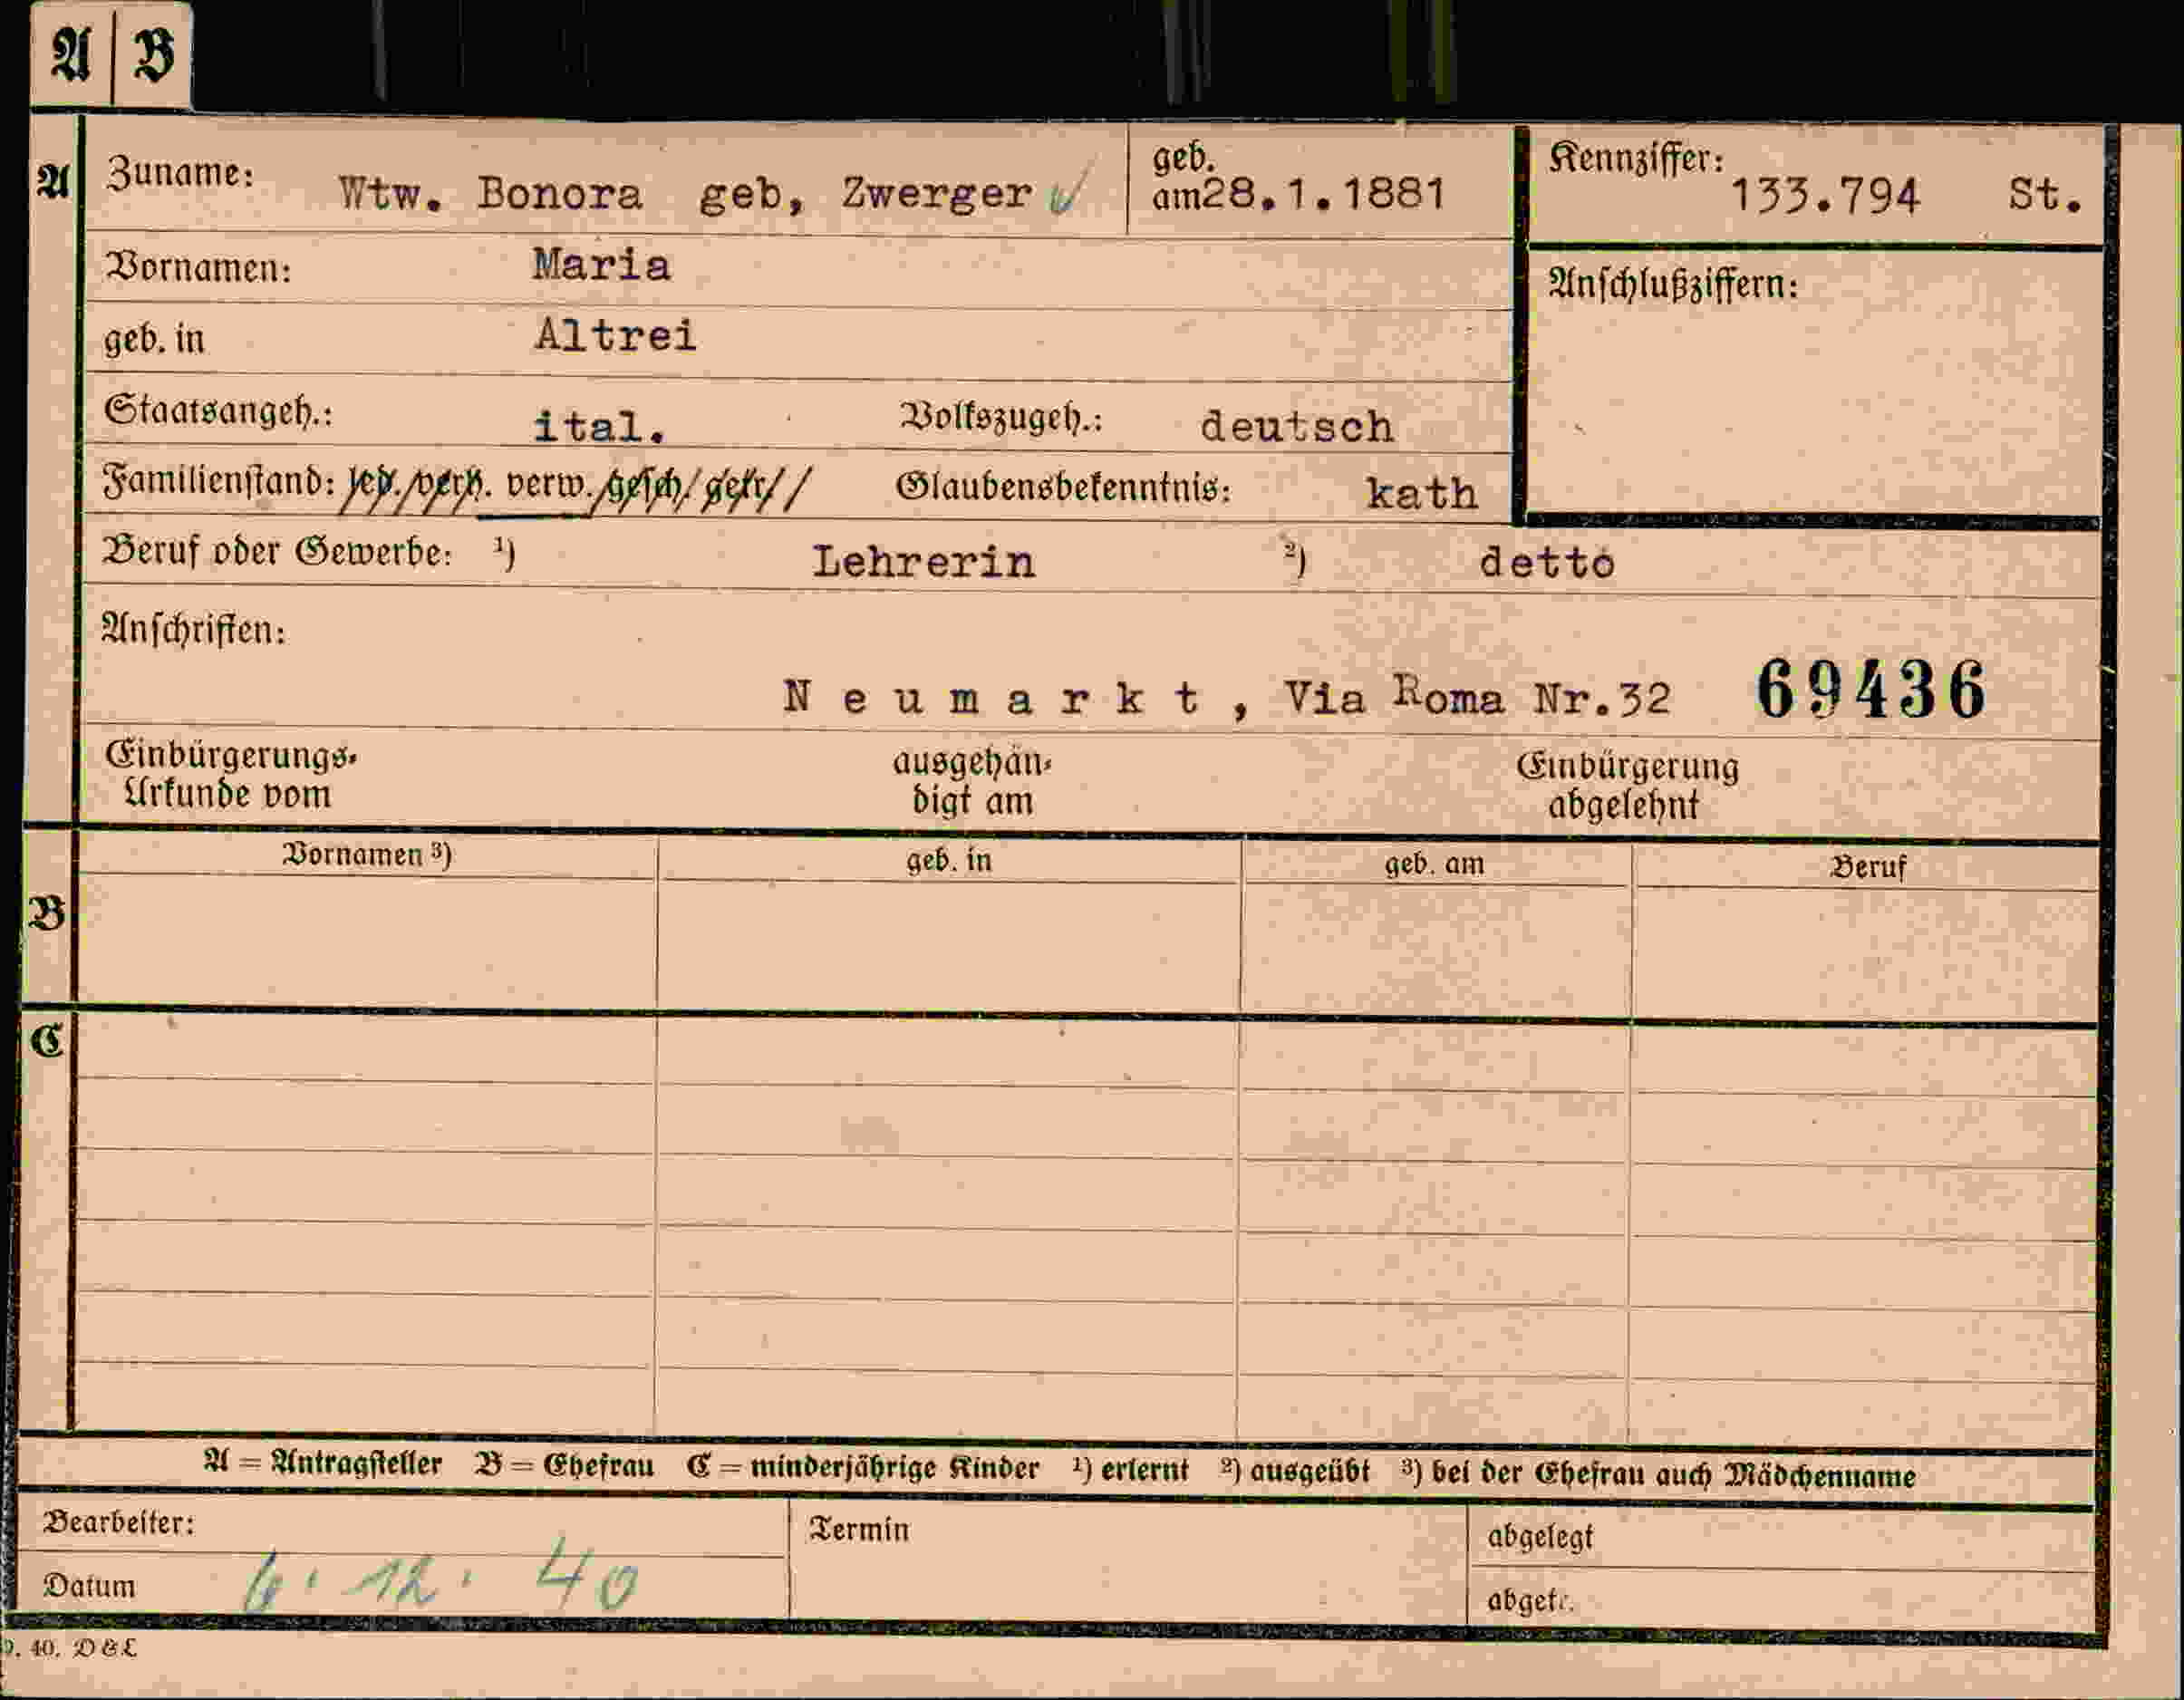 A B
A Zuname: Wtw. Bonora geb, Zwerger geb. am 28.1.1881 Kennziffer: 133.794 St.
Vornamen: Maria Anschlußziffern:
geb. in Altrei
Staatsangeh.: ital. Volkszugeh.: deutsch
Familienstand: led. verh. verw. gesch. getr. Glaubensbekenntnis: kath
Beruf oder Gewerbe: 1) Lehrerin 2) detto
Anschriften:
Neumarkt, Via Roma Nr.32 69436
Einbürgerungs- ausgehän- Einbürgerung
Urkunde vom digt am abgelehnt
Vornamen 3) geb. in geb. am Beruf
B
C
A = Antragsteller B = Ehefrau C = minderjährige Kinder 1) erlernt 2) ausgeübt 3) bei der Ehefrau auch Mädchenname
Bearbeiter: Termin abgelegt
Datum 6. 12. 40 abgetr.
9. 40. D & L